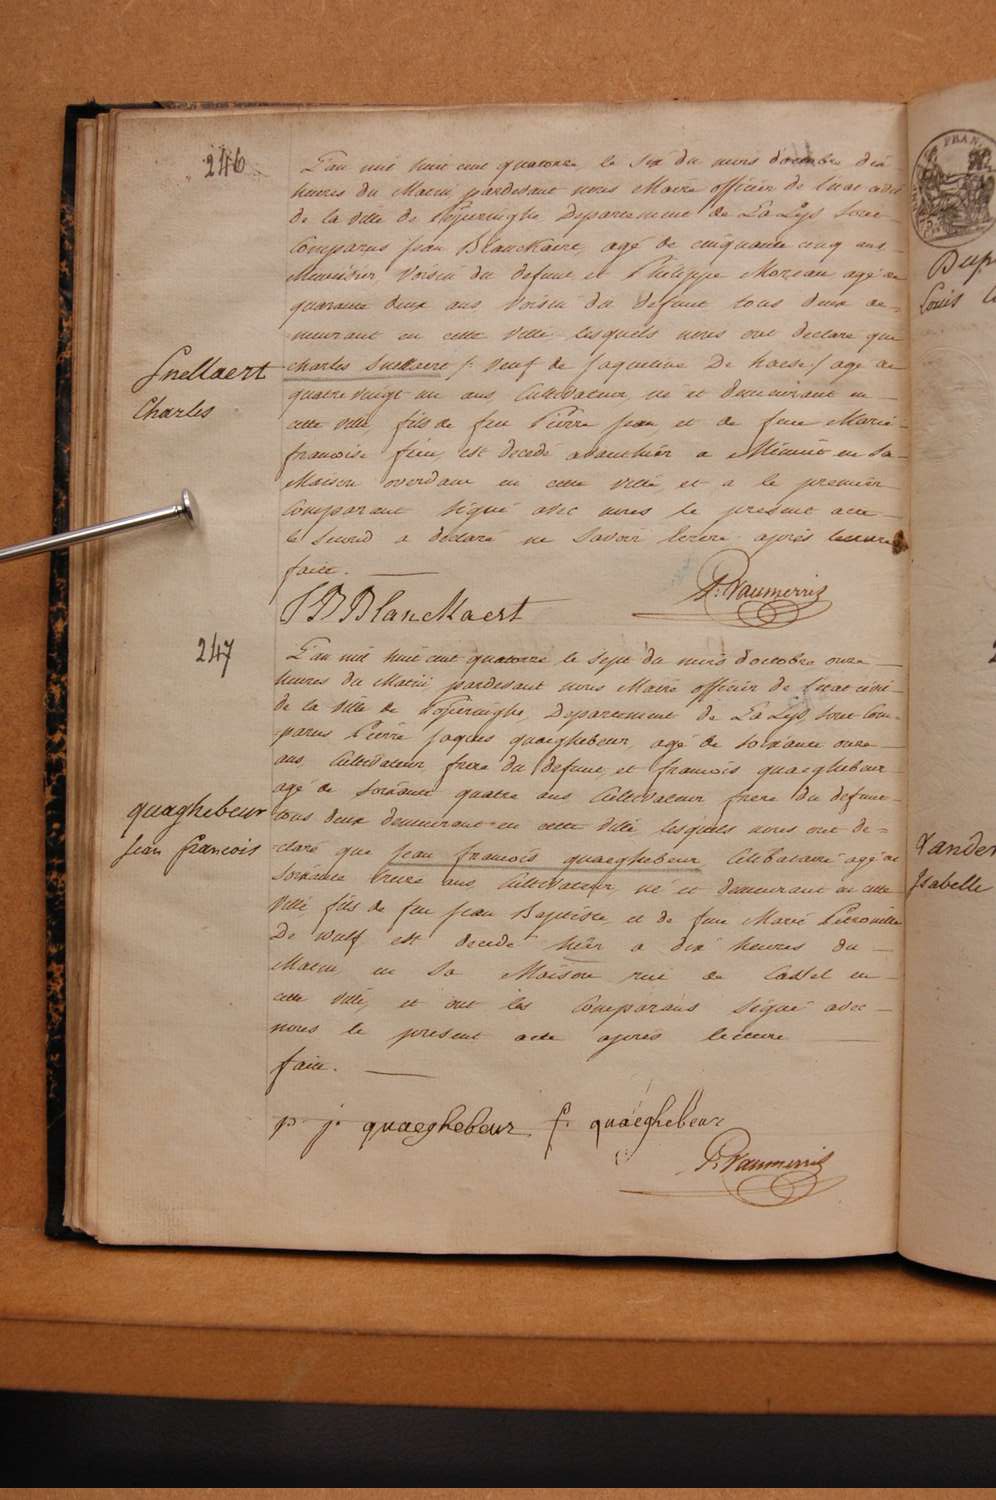 246
L'an mil huit cent quatorze le six du mois d'octobre dix
heures du Matin pardevant nous Maire officier de l'etat civil
de la ville de Poperinghe, Departement de La Lys sont
Comparus jean Blanckaert, agé de cinquante cinq ans
Meunier, voisin du defunt et Philippe Moreau agé de
quarante deux ans voisin du defunt tous deux de-
meurant en cette ville lesquels nous ont declaré que
Snellaert
Charles
charles Snellaert /: veuf de jaqueline De haese / agé de
quatre vingt un ans, Cultivateur, né et demeurant en
cette ville, fils de feu Pierre jean et de feue Marie
francoise est decedé avanthier a Minuit en Sa
Maison overdam en cette ville, et a le premier
Comparant signé avec nous le present acte
le second a declaré ne savoir ecrire après lecture
faite.
J B Blanckaert
P. Vaumerris
247
L'an mil huit cent quatorze le sept du mois d'octobre onze
heures du Matin pardevant nous Maire officier de l'etat civil
de la ville de Poperinghe, Departement de La Lys, sont Com-
parus Pierre jaques quaeghebeur, agé de soixante onze
ans, Cultivateur, frere du defunt et francois quaeghebeur
agé de soixante quatre ans Cultivateur frere du defunt
tous deux demeurant en cette ville lesquels nous ont de-
quaghebeur
jean francois
claré que jean francois quaeghebeur, Celibataire agé de
soixante treize ans, Cultivateur, né et demeurant en cette
ville fils de feu jean Baptiste et de feue Marie Petronille
De wulf est decedé hier a dix heures du
Matin en sa Maison rue de Cassel en
cette ville, et ont les Comparans signé avec
nous le present acte après lecture
faite.
p. j. quaeghebeur f. quaeghebeur
P. Vaumerris
FRAN
Dup
Louis
Vander
Isabelle